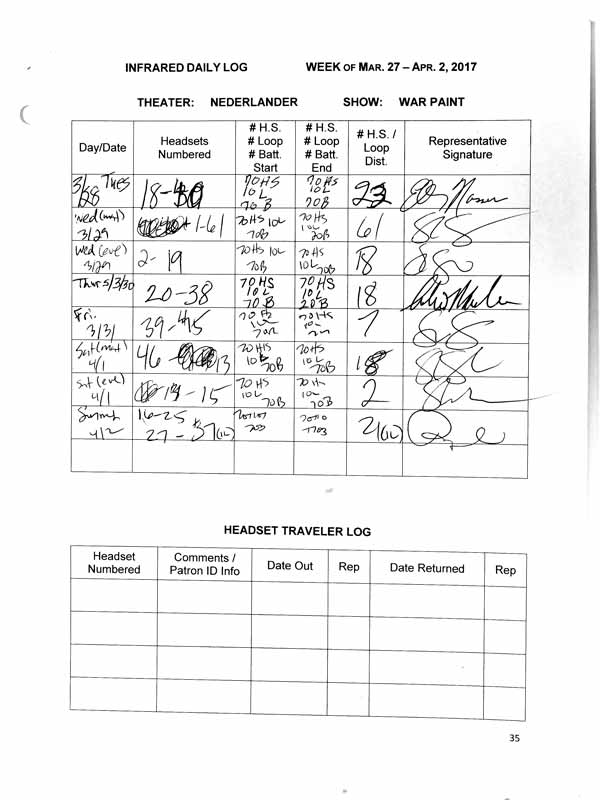 INFRARED DAILY LOG WEEK OF MAR. 27 – APR. 2, 2017
THEATER: NEDERLANDER SHOW: WAR PAINT
Day/Date Headsets Numbered # H.S. # Loop # Batt. Start # H.S. # Loop # Batt. End # H.S. / Loop Dist. Representative Signature
3/28 Tues 18-40 70HS 10L 70B 70HS 10L 70B 23
Wed (mat) 3/29 1-61 70HS 10L 70B 70HS 10L 70B 61
Wed (eve) 3/29 2-19 70HS 10L 70B 70HS 10L 70B 18
Thurs/3/30 20-38 70HS 10L 70B 70HS 10L 70B 18
Fri. 3/31 39-45 7
Sat (mat) 4/1 46- 13 70HS 10L 70B 70HS 10L 70B 18
Sat (eve) 4/1 - 15 70HS 10L 70B 70B 2
4/2 16-25 27-37 (1L) 21 (1L)
HEADSET TRAVELER LOG
Headset Numbered Comments / Patron ID Info Date Out Rep Date Returned Rep
35